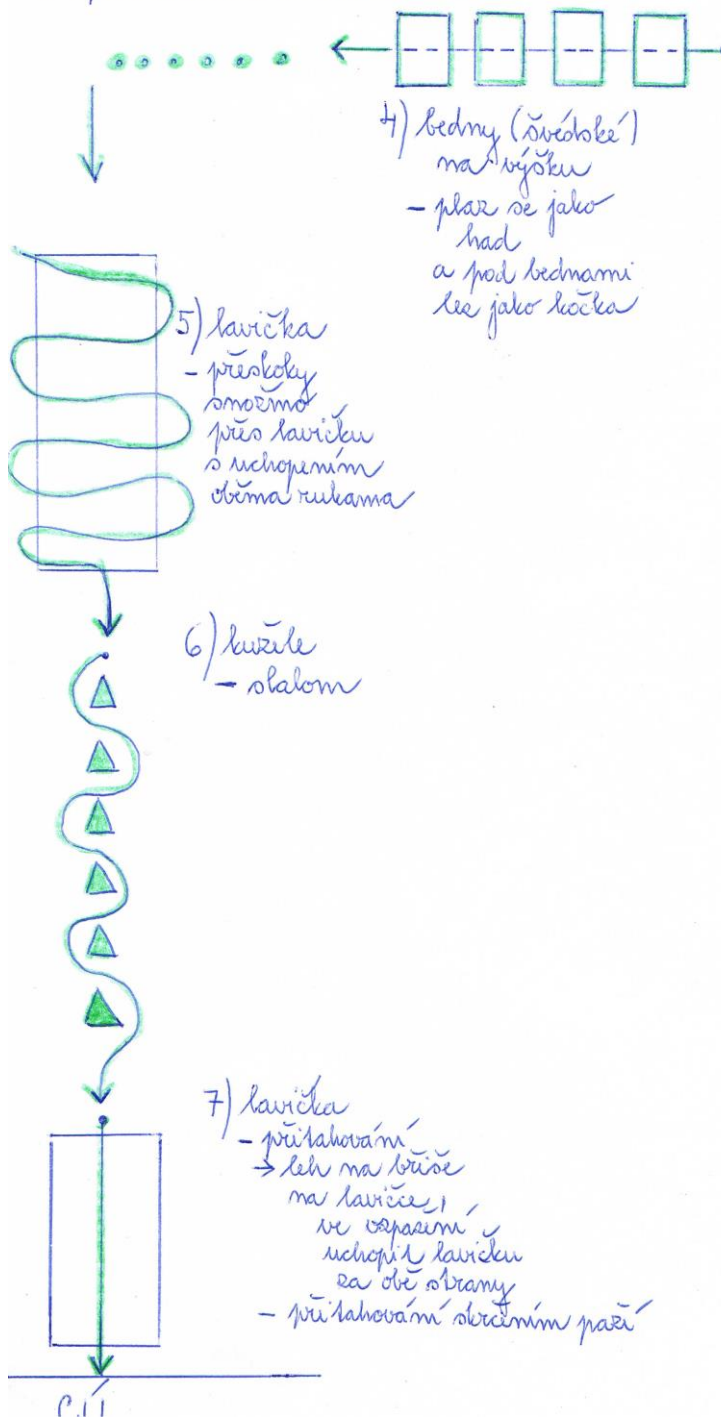 4) bedny (švédské)
na výšku
- plaz se jako
had
a pod bednami
lez jako kočka
5) lavička
- přeskoky
snožmo
přes lavičku
s uchopením
oběma rukama
6) kužele
- slalom
7) lavička
- přitahování
→ leh na břiše
na lavičce,
ve vzpažení
uchopit lavičku
za obě strany
- přitahování skrčením paží